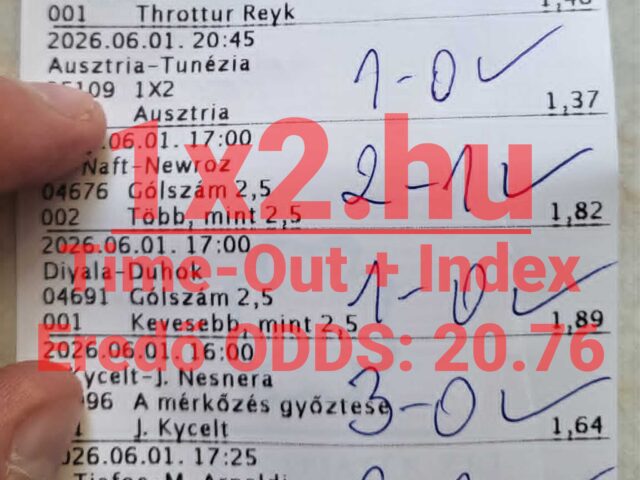 001 Throttur Reyk
2026.06.01. 20:45
Ausztria-Tunézia
109 1X2
Ausztria 1,37
1-0 ✓
.06.01. 17:00
Naft-Newroz
04676 Gólszám 2,5
002 Több, mint 2,5 1,82
2-1 ✓
2026.06.01. 17:00
Diyala-Duhok
04691 Gólszám 2,5
001 Kevesebb, mint 2,5 1,89
1-0 ✓
2026.06.01. 16:00
ycelt-J. Nesnera
96 A mérkőzés győztese
J. Kycelt 1,64
3-0 ✓
026.06.01. 17:25
1x2.hu
Time-Out + Index
Eredő ODDS: 20.76